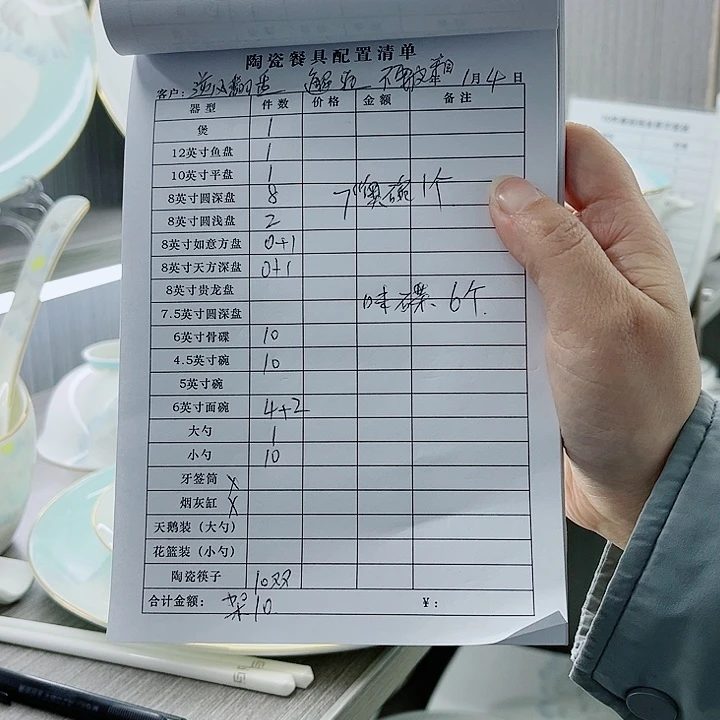 陶瓷餐具配置清单
客户: 1月4日
器型 件数 价格 金额 备注
煲 1
12英寸鱼盘 1
10英寸平盘 1
8英寸圆深盘 8 碗1个
8英寸圆浅盘 2
8英寸如意方盘 0+1
8英寸天方深盘 0+1
8英寸贵龙盘 味碟、6个
7.5英寸圆深盘
6英寸骨碟 10
4.5英寸碗 10
5英寸碗
6英寸面碗 4+2
大勺 1
小勺 10
牙签筒 x
烟灰缸 x
天鹅装（大勺）
花篮装（小勺）
陶瓷筷子 10双
合计金额: 架10 ¥: